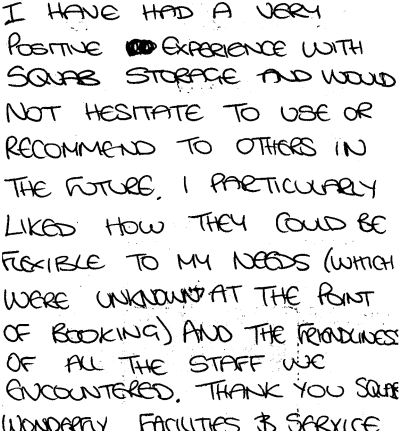 I HAVE HAD A VERY
POSITIVE EXPERIENCE WITH
SQUAB STORAGE AND WOULD
NOT HESITATE TO USE OR
RECOMMEND TO OTHERS IN
THE FUTURE. I PARTICULARLY
LIKED HOW THEY COULD BE
FLEXIBLE TO MY NEEDS (WHICH
WERE UNKNOWN AT THE POINT
OF BOOKING) AND THE FRIENDLINESS
OF ALL THE STAFF WE
ENCOUNTERED. THANK YOU SQUAB
FACILITIES & SERVICE